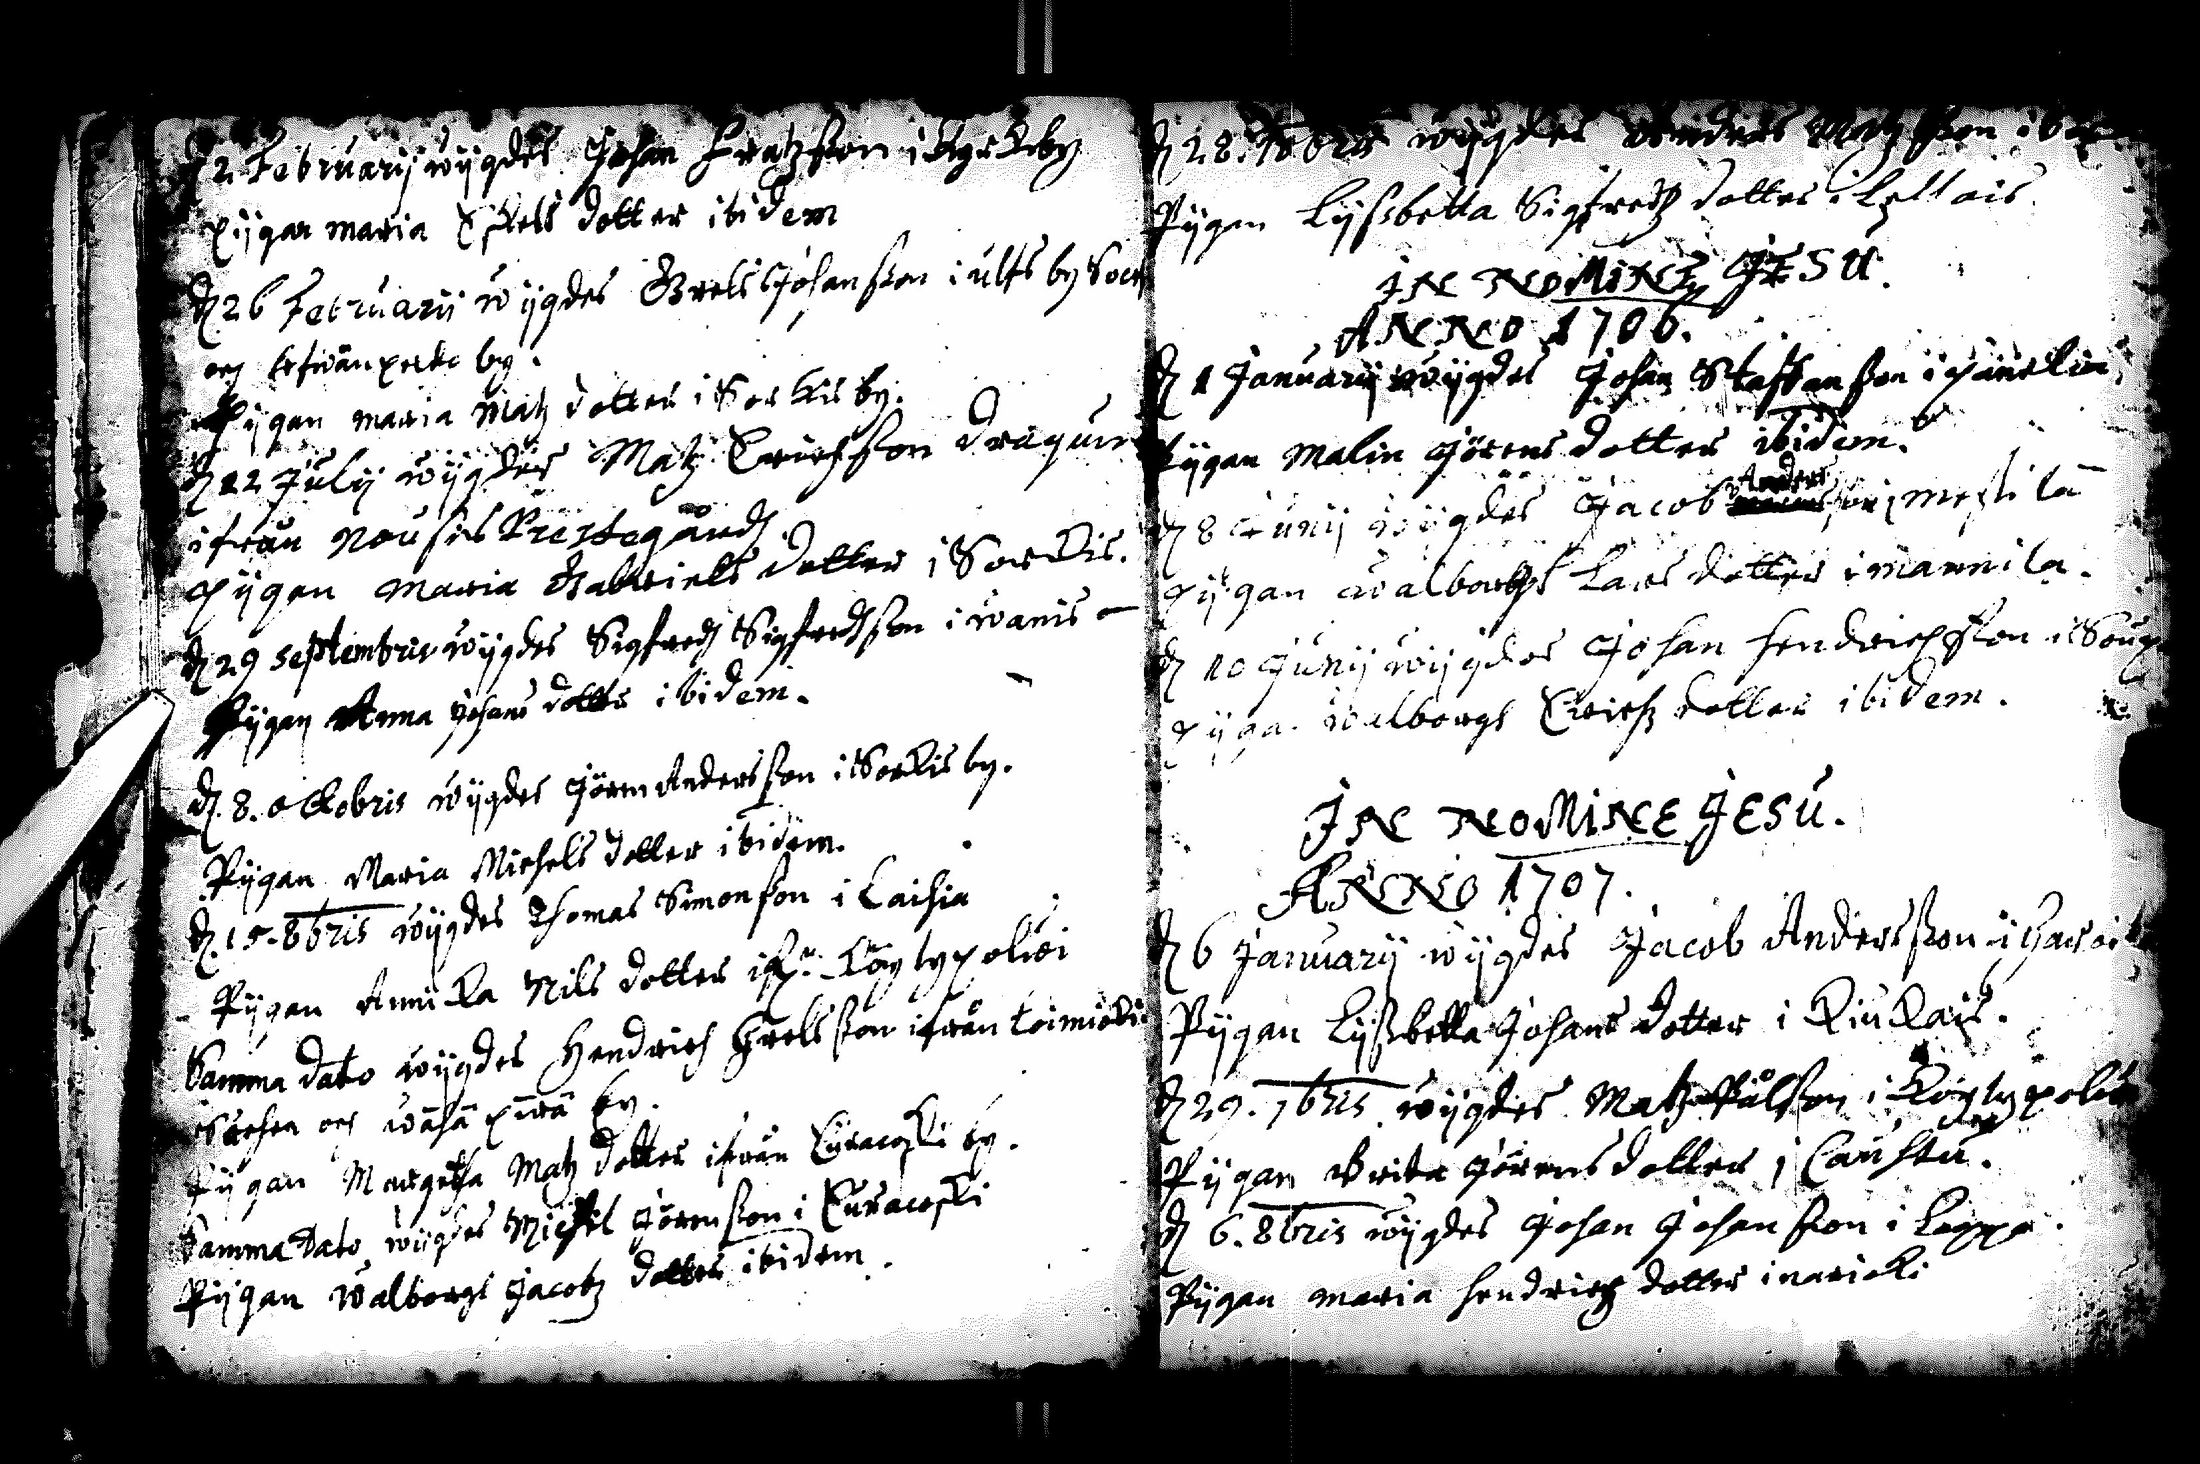 d 2 Februarij wijgdes Johan Fratzson i Kyrkby
pijgan maria Eskels dotter ibidem
d 26 Februarij wijgdes Grels Johansson i ults by
och by.
Pijgan maria Matz dotter i Sorkis by.
d 12 Julij wijgdes Matz Erichsson Dragun
ifrån Nousis Prestegård
pijgan maria Gabriels dotter i Sorkis.
d 29 septembris wijgdes Sigfred Sigfredsson i wanis
Pijgan Anna Johans dotter ibidem.
d. 8. oktobris wijgdes Jören Andersson i Sorkis by.
Pijgan Maria Michels dotter ibidem.
d. 15. 8bris wijgdes Thomas Simonson i Laihia
Pijgan Annika Nils dotter Köylypolvi
Samma dato wijgdes Hendrich Grelsson ifrån
Sochn och by.
Pijgan Margetha Matz dotter ifrån Curacoski by.
Samma dato wijgdes Michil Jörensson i Curacoski
Pijgan Walborgs Jacobz dotter ibidem.
d 28. wijgdes Anders Matzson i
Pijgan Lijsbetta Sigfredz dotter i
IN NOMINE JESU.
ANNO 1706.
d 1 Januarij wijgdes Johan Staffanson i
Pijgan Malin Jörens dotter ibidem.
d 8 Junij wijgdes Jacob Anders son i
pijgan walborgs Lars dotter i mannila.
d 10 Junij wijgdes Johan Hendrichsson i
pijgan Walborgs Erichz dotter ibidem.
IN NOMINE JESU.
ANNO 1707.
d 6 Januarij wijgdes Jacob Andersson i
Pijgan Lijsbetta Johans dotter i Kiukais.
d 29. 7bris wijgdes Matz Pålson i Köylypolvi
Pijgan Brita Jörens dotter i Caustu.
d 6. 8bris wijgdes Johan Johansson i Lappo.
Pijgan maria Hendrichz dotter i